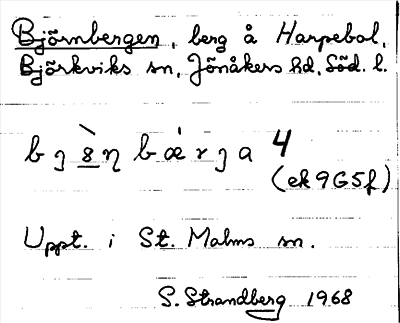 Björnbergen, berg å Harpebol,
Björkviks sn, Jönåkers hd, Söd. l.
bȷ8̀ŋ bǽrȷa 4
(ek 9G5f)
Uppt. i St. Malms sn.
S. Strandberg 1968